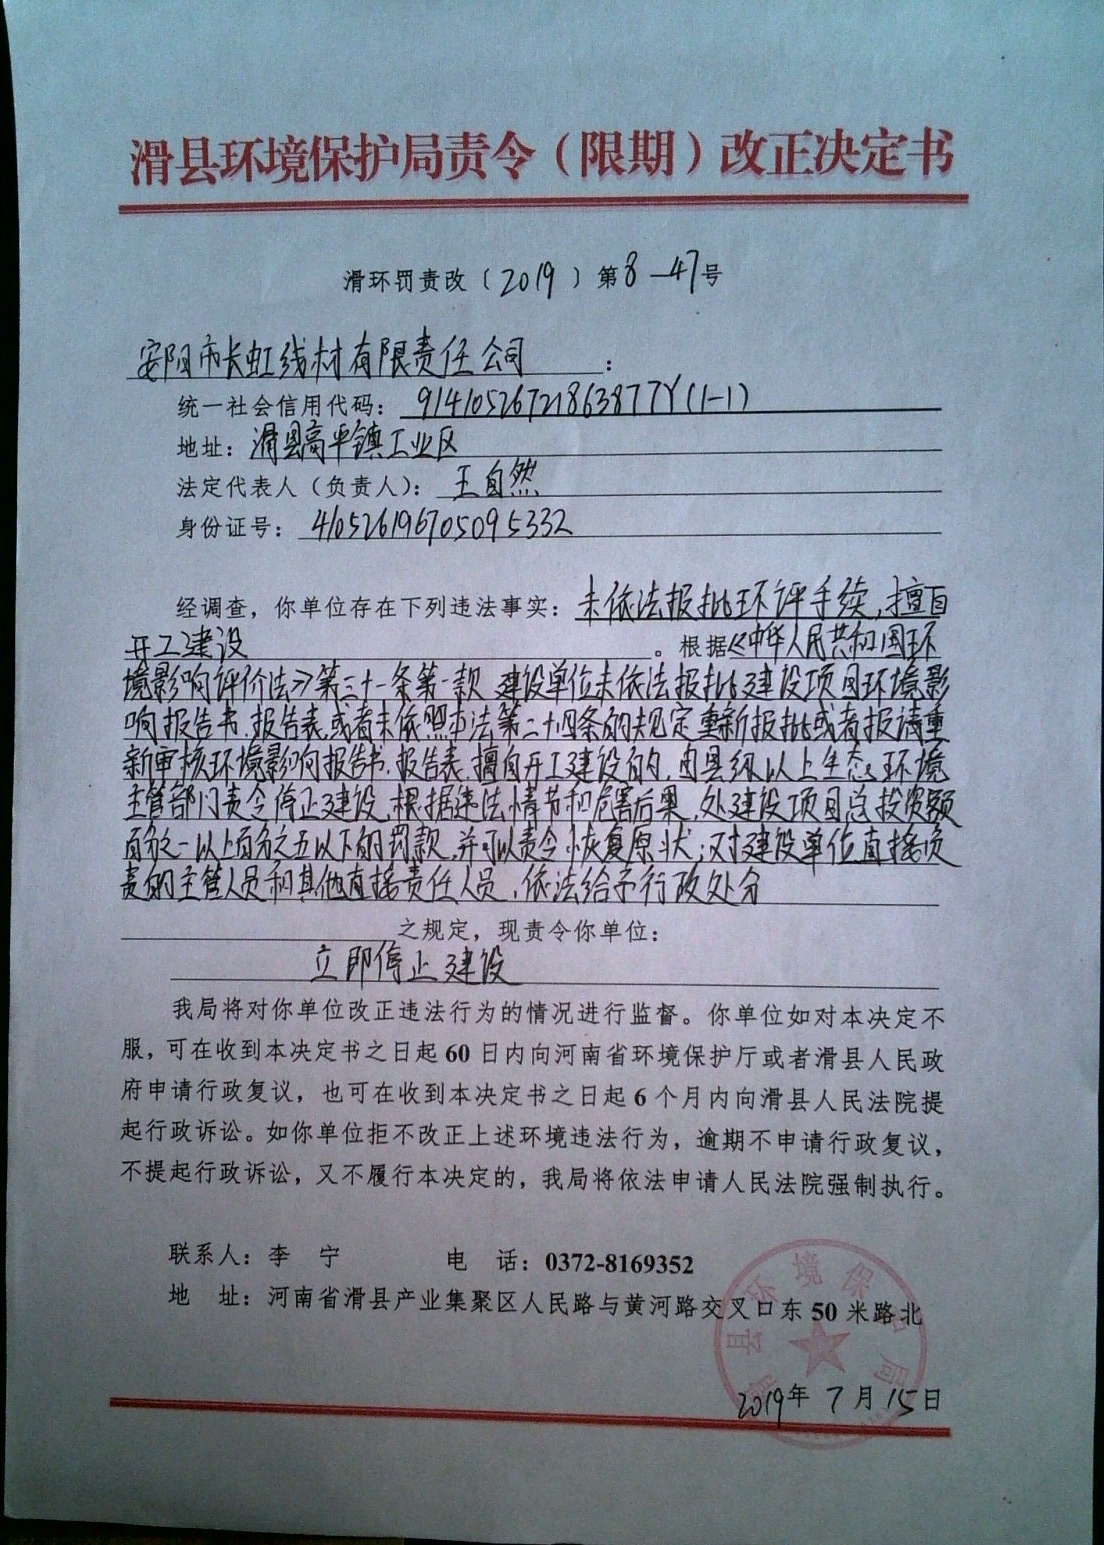 滑县环境保护局责令（限期）改正决定书
滑环罚责改（2019）第8-47号
安阳市长虹线材有限责任公司：
统一社会信用代码：91410526721863877Y(1-1)
地址：滑县高平镇工业区
法定代表人（负责人）：王自然
身份证号：410526196705095332
经调查，你单位存在下列违法事实：未依法报批环评手续，擅自
开工建设。根据《中华人民共和国环
境影响评价法》第三十一条第一款 建设单位未依法报批建设项目环境影
响报告书、报告表，或者未依照本法第二十四条的规定重新报批或者报请重
新审核环境影响报告书、报告表，擅自开工建设的，由县级以上生态环境
主管部门责令停止建设，根据违法情节和危害后果，处建设项目总投资额
百分之一以上百分之五以下的罚款，并可以责令恢复原状；对建设单位直接负
责的主管人员和其他直接责任人员，依法给予行政处分
之规定，现责令你单位：
立即停止建设
我局将对你单位改正违法行为的情况进行监督。你单位如对本决定不
服，可在收到本决定书之日起60日内向河南省环境保护厅或者滑县人民政
府申请行政复议，也可在收到本决定书之日起6个月内向滑县人民法院提
起行政诉讼。如你单位拒不改正上述环境违法行为，逾期不申请行政复议，
不提起行政诉讼，又不履行本决定的，我局将依法申请人民法院强制执行。
联系人：李 宁 电 话：0372-8169352
地 址：河南省滑县产业集聚区人民路与黄河路交叉口东50米路北
滑县环境保护局
2019年7月15日